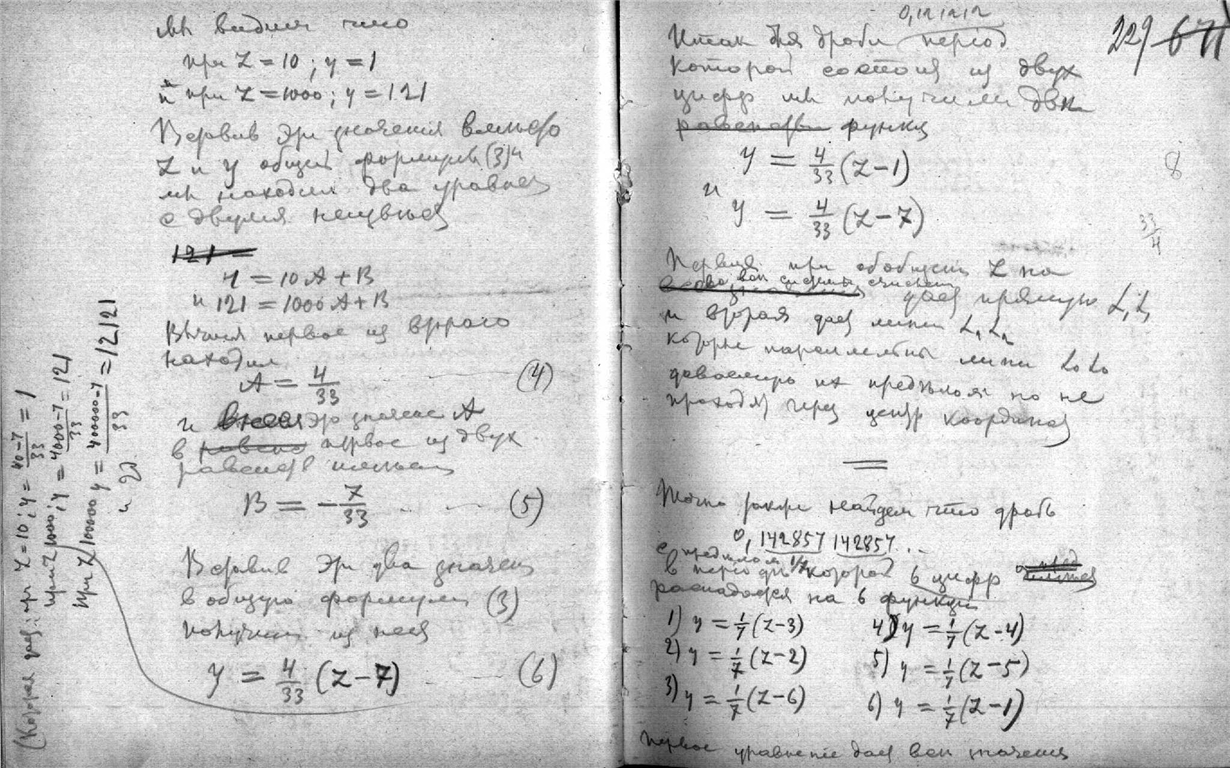 мы видим что
при Z = 10 ; y = 1
и при Z = 1000 ; y = 121
Вставив эти значения вместо
Z и y общей формулы (3)
мы находим два уравнен
с двумя неизвес
121 =
1 = 10A + B
и 121 = 1000A + B
Вычтя первое из второго
находим
A = 4/33 (4)
и это значение A
в первое из двух
равенств имеем
B = − 7/33 (5)
Вставив эти два значен
в общую формулу (3)
получим из нея
y = 4/33 (Z − 7) (6)
(Которая дает: при Z = 10 ; y = 40−7/33 = 1
при Z 1000 ; y = 4000−7/33 = 121
при Z 100000 y = 400000−7/33 = 12121
и
0,121212
Итак для дроби период
229 671
которой состоит из двух
цифр мы получили две
равенства функц
y = 4/33 (Z − 1)
8
и
y = 4/33 (Z − 7)
33/4
Первая при Z на
системы счислен
дает прямую L₁L₁
и вторая дает линию L₂L₂
которые параллельны линии L₀L₀
дающую их предел но не
проходят через центр координат
Точно также найдем что дробь
0,142857 142857 . . .
с пределом 1/7
в период которой 6 цифр
распадается на 6 функций
1) y = 1/7 (Z − 3) 4) y = 1/7 (Z − 4)
2) y = 1/7 (Z − 2) 5) y = 1/7 (Z − 5)
3) y = 1/7 (Z − 6) 6) y = 1/7 (Z − 1)
Первое уравнение дает все значения